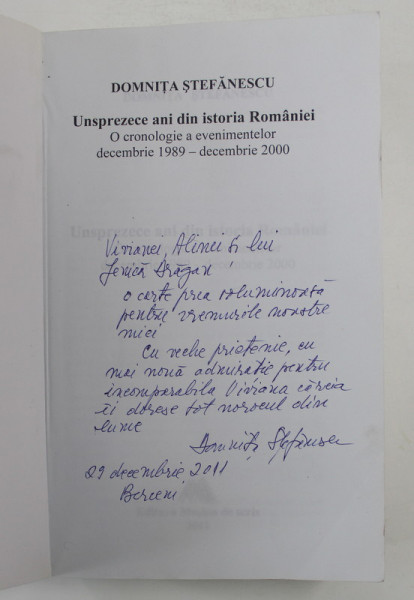 DOMNIȚA ȘTEFĂNESCU
Unsprezece ani din istoria României
O cronologie a evenimentelor
decembrie 1989 – decembrie 2000
Vivianei, Alinei și lui
Jenică Drăgan
o carte prea voluminoasă
pentru vremurile noastre
mici
Cu veche prietenie, cu
mai nouă admirație pentru
incomparabila Viviana căreia
îi doresc tot norocul din
lume
Domnița Ștefănescu
29 decembrie, 2011
Berceni